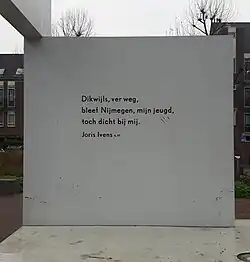 Dikwijls, ver weg,
bleef Nijmegen, mijn jeugd,
toch dicht bij mij.
Joris Ivens